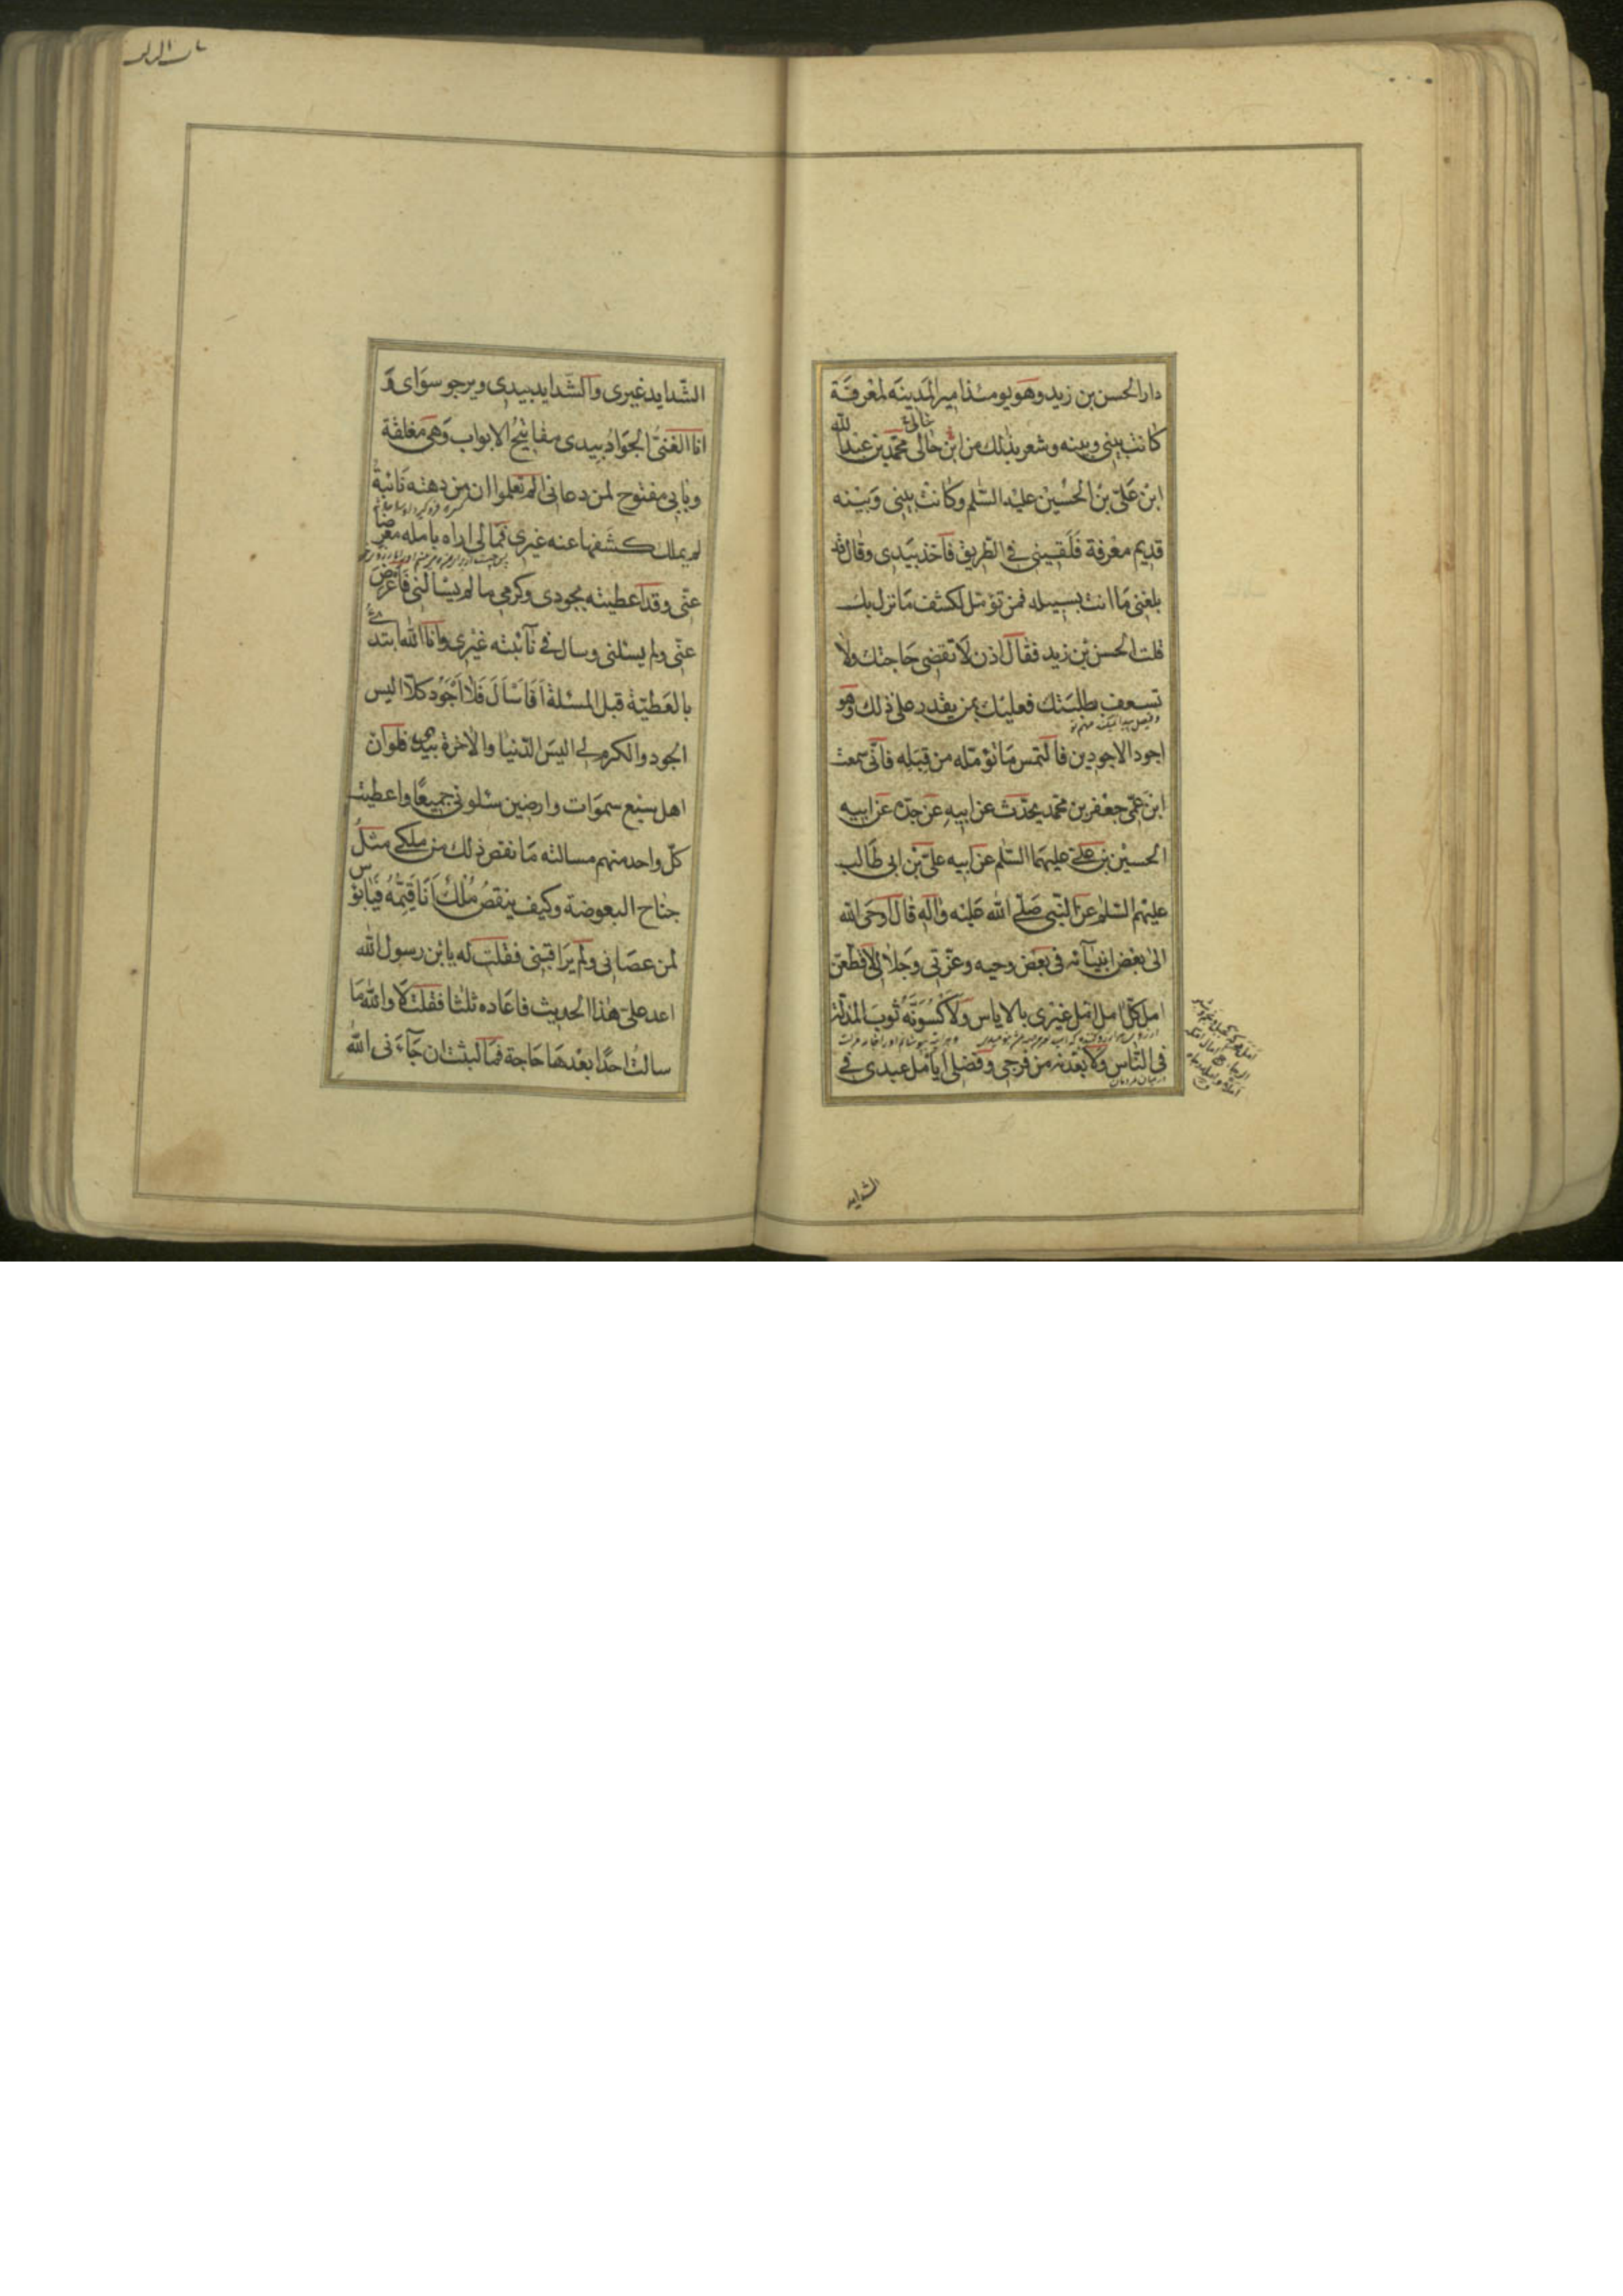 دار الحسن بن زيد وهو يومئذ امير المدينه لمعرفة
كانت بينى وبينه وشعر بذلك من ابن خالى محمّد بن عبد الله
ابن علىّ بن الحسين عليه السّلم وكانت بينى وبينه
قديم معرفة فلقينى فى الطّريق فاخذ بيدى وقال قد
بلغنى ما انت بسبيله فمن تؤمّل لكشف ما نزل بك
قلت الحسن بن زيد فقال اذن لا تقضى حاجتك ولا
تسعف بطلبتك فعليك بمن يقدر على ذلك وهو
اجود الاجودين فالتمس ما تؤمّله من قبله فانّى سمعت
ابن عمّى جعفر بن محمد يحدّث عن ابيه عن جدّه عن ابيه
الحسين بن علىّ عليهما السّلم عن ابيه علىّ بن ابى طالب
عليهم السّلم عن النّبى صلّى الله عليه وآله قال اوحى الله
الى بعض انبيآئه فى بعض وحيه وعزّتى وجلالى لاقطعنّ
امل كلّ امل امّل غيرى بالاياس ولاكسونّه ثوب المذلّة
فى النّاس ولابعدنه من فرجى وفضلى ايامل عبدى فى
الشدايد
الشّدايد غيرى والشّدايد بيدى ويرجو سواى و
انا الغنىّ الجواد بيدى مفاتيح الابواب وهى مغلقة
وبابى مفتوح لمن دعانى الم تعلموا ان من دهته نائبة
لم يملك كشفها عنه غيرى فما لى اراه بامله معرضا
عنّى وقد اعطيته بجودى وكرمى ما لم يسالنى فاعرض
عنّى ولم يسئلنى وسال فى نآئبته غيرى وانا الله ابتدئ
بالعطيّة قبل المسئلة افاسال فلا اجود كلّا اليس
الجود والكرم لى اليس الدّنيا والاخرة بيدى فلو ان
اهل سبع سموات وارضين سئلونى جميعا واعطيت
كلّ واحد منهم مسالته ما نقص ذلك من ملكى مثل
جناح البعوضة وكيف ينقص ملك انا قيّمه فيا بؤس
لمن عصانى ولم يراقبنى فقلت له يا بن رسول الله
اعد علىّ هذا الحديث فاعاده ثلثا فقلت لا والله ما
سالت احدا بعدها حاجة فما لبثت ان جآءنى الله